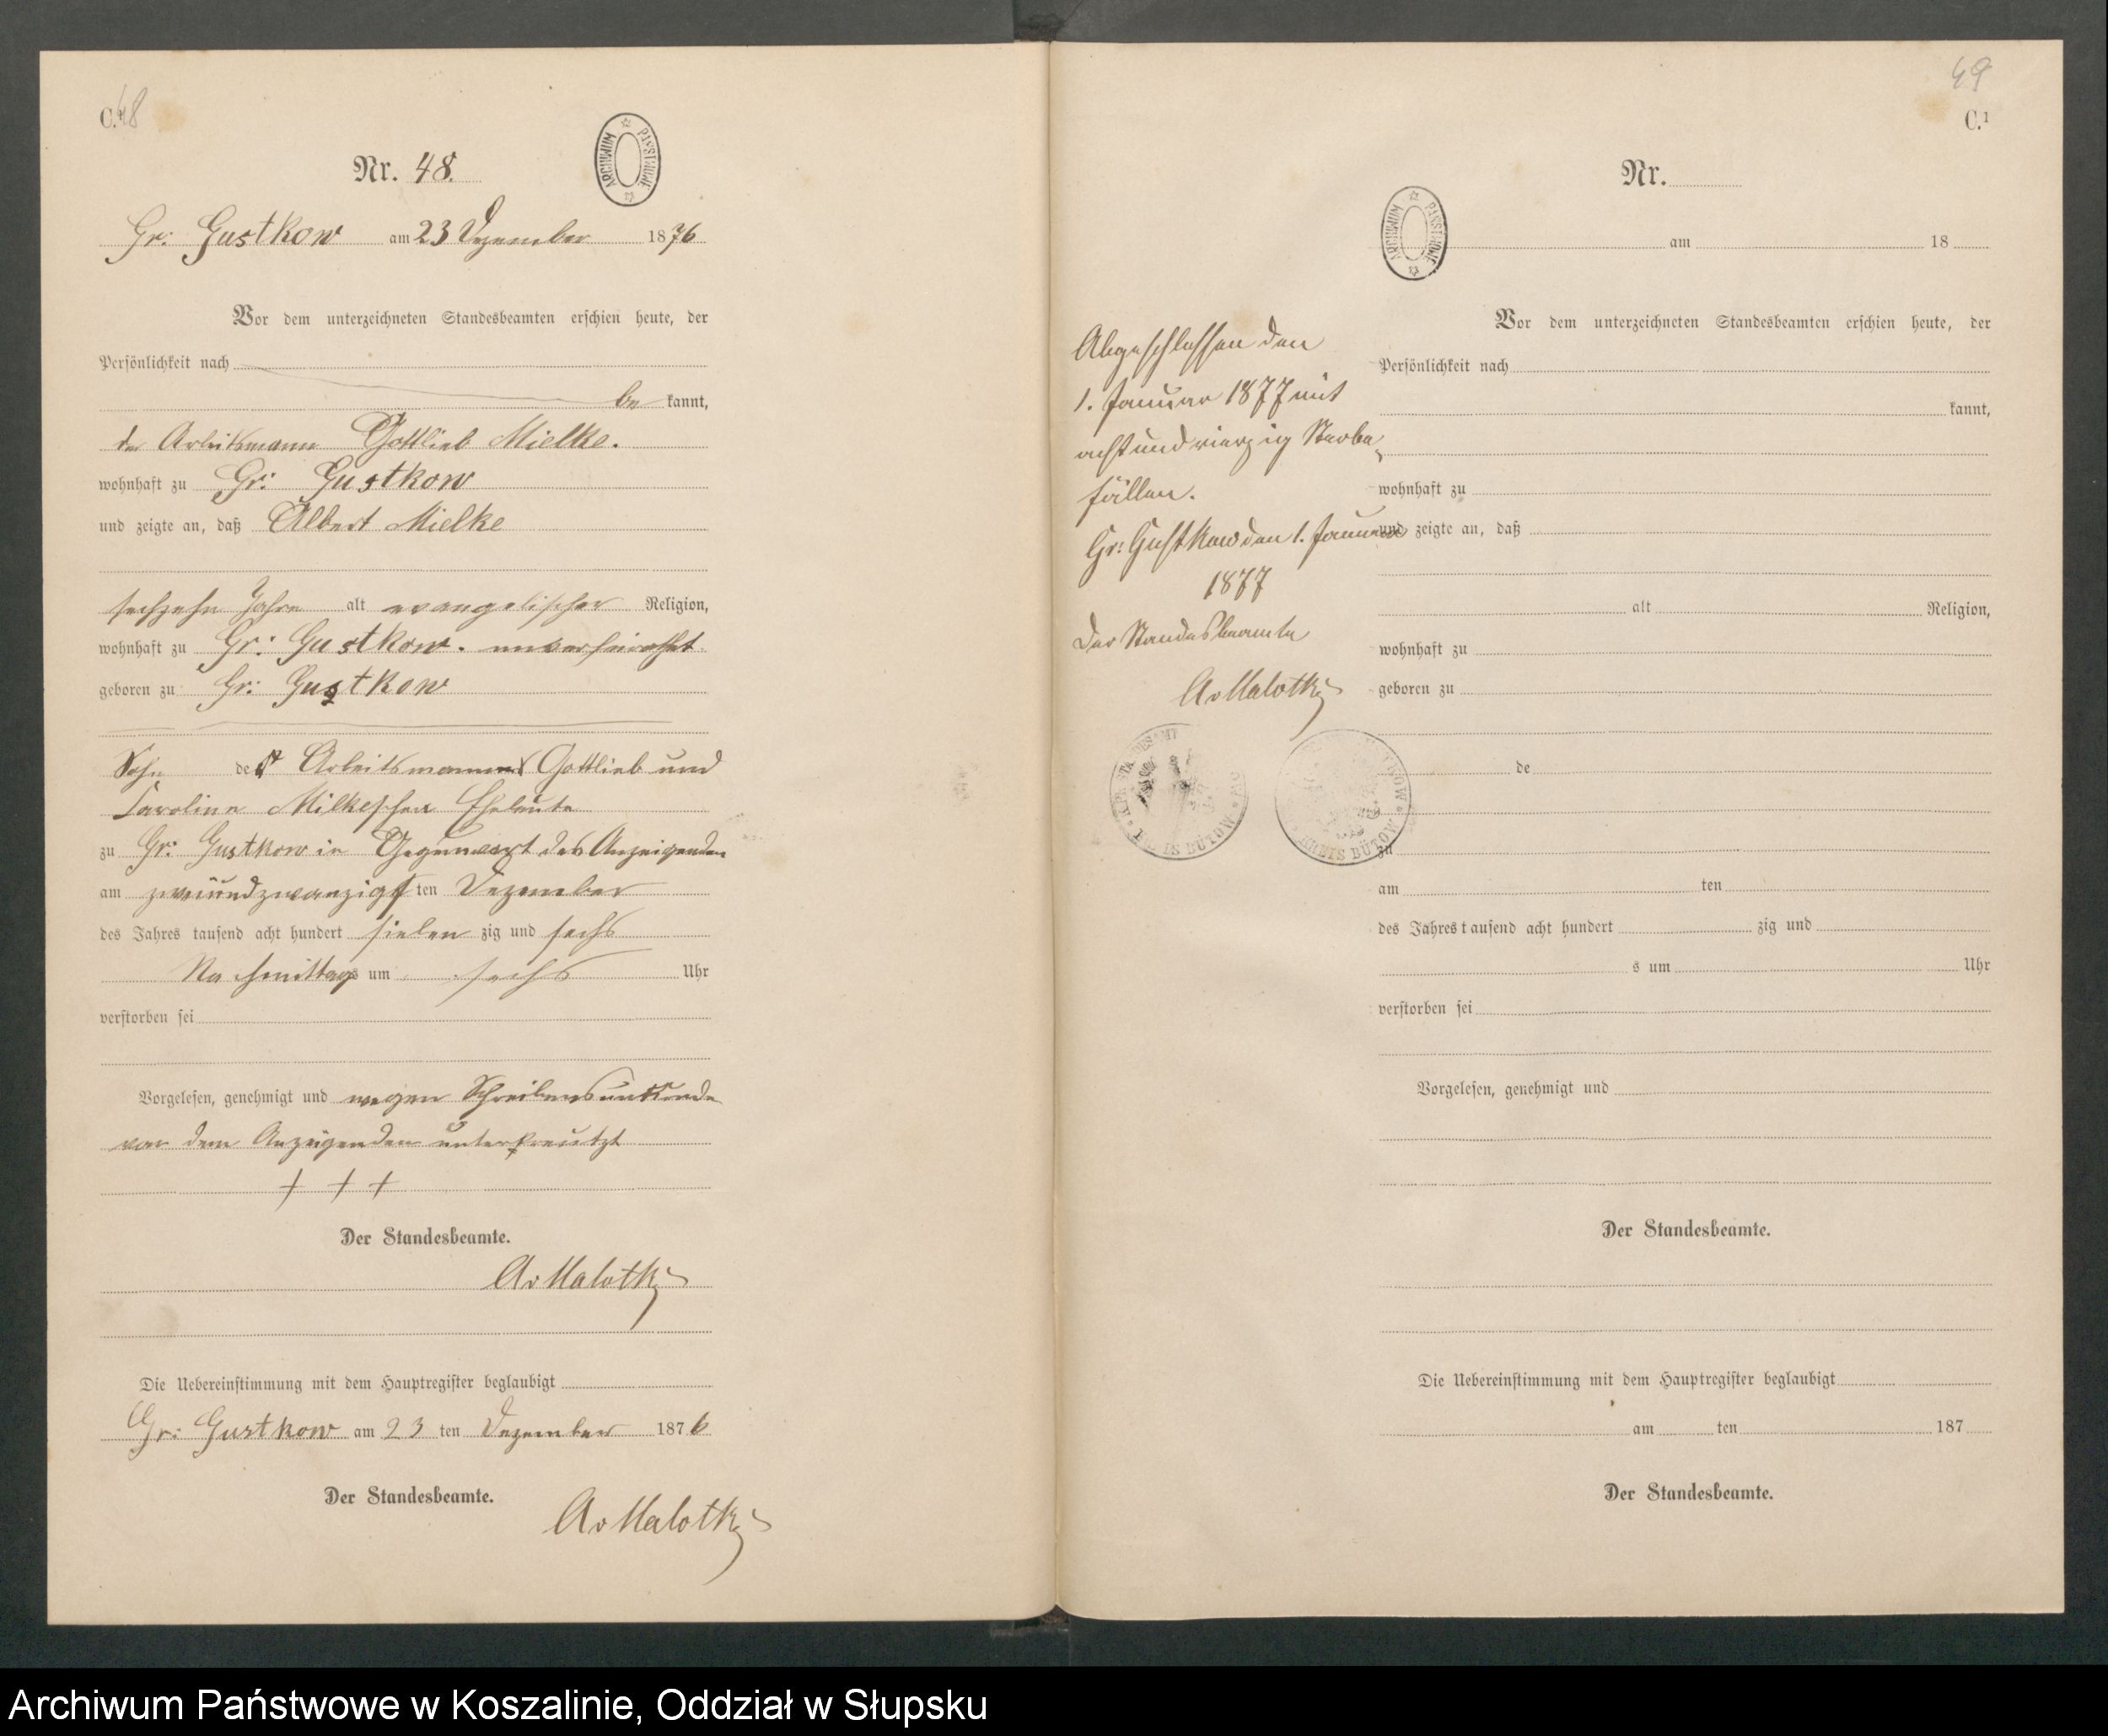 48
C.
Nr. 48.
ARCHIWUM PAŃSTWOWE
Gr: Gustkow am 23 Dezember 1876
Vor dem unterzeichneten Standesbeamten erschien heute, der
Persönlichkeit nach
be kannt,
der Arbeitsmann Gottlieb Mielke.
wohnhaft zu Gr: Gustkow
und zeigte an, daß Albert Mielke
sechzehn Jahre alt evangelischer Religion,
wohnhaft zu Gr: Gustkow. unverheirathet
geboren zu Gr: Gustkow
Sohn der Arbeitsmann Gottlieb und
Caroline Milkeschen Eheleute
zu Gr: Gustkow in Gegenwart des Anzeigenden
am zweiundzwanzigsten Dezember
des Jahres tausend acht hundert sieben zig und sechs
Nachmittags um sechs Uhr
verstorben sei
Vorgelesen, genehmigt und wegen Schreibensunkunde
von dem Anzeigenden unterkreutzt
+ + +
Der Standesbeamte.
AvMalotki
Die Uebereinstimmung mit dem Hauptregister beglaubigt
Gr: Gustkow am 23 ten Dezember 1876
Der Standesbeamte.
AvMalotki
49
C.1
Nr.
ARCHIWUM PAŃSTWOWE
am 18
Vor dem unterzeichneten Standesbeamten erschien heute, der
Persönlichkeit nach
kannt,
wohnhaft zu
und zeigte an, daß
alt Religion,
wohnhaft zu
geboren zu
de
zu
am ten
des Jahres tausend acht hundert zig und
s um Uhr
verstorben sei
Vorgelesen, genehmigt und
Der Standesbeamte.
Die Uebereinstimmung mit dem Hauptregister beglaubigt
am ten 187
Der Standesbeamte.
Abgeschlossen den
1. Januar 1877 mit
achtundvierzig Sterbe
fällen.
Gr: Gustkow den 1. Januar
1877
Der Standesbeamte
AvMalotki
KREIS BÜTOW
KREIS BÜTOW
Archiwum Państwowe w Koszalinie, Oddział w Słupsku